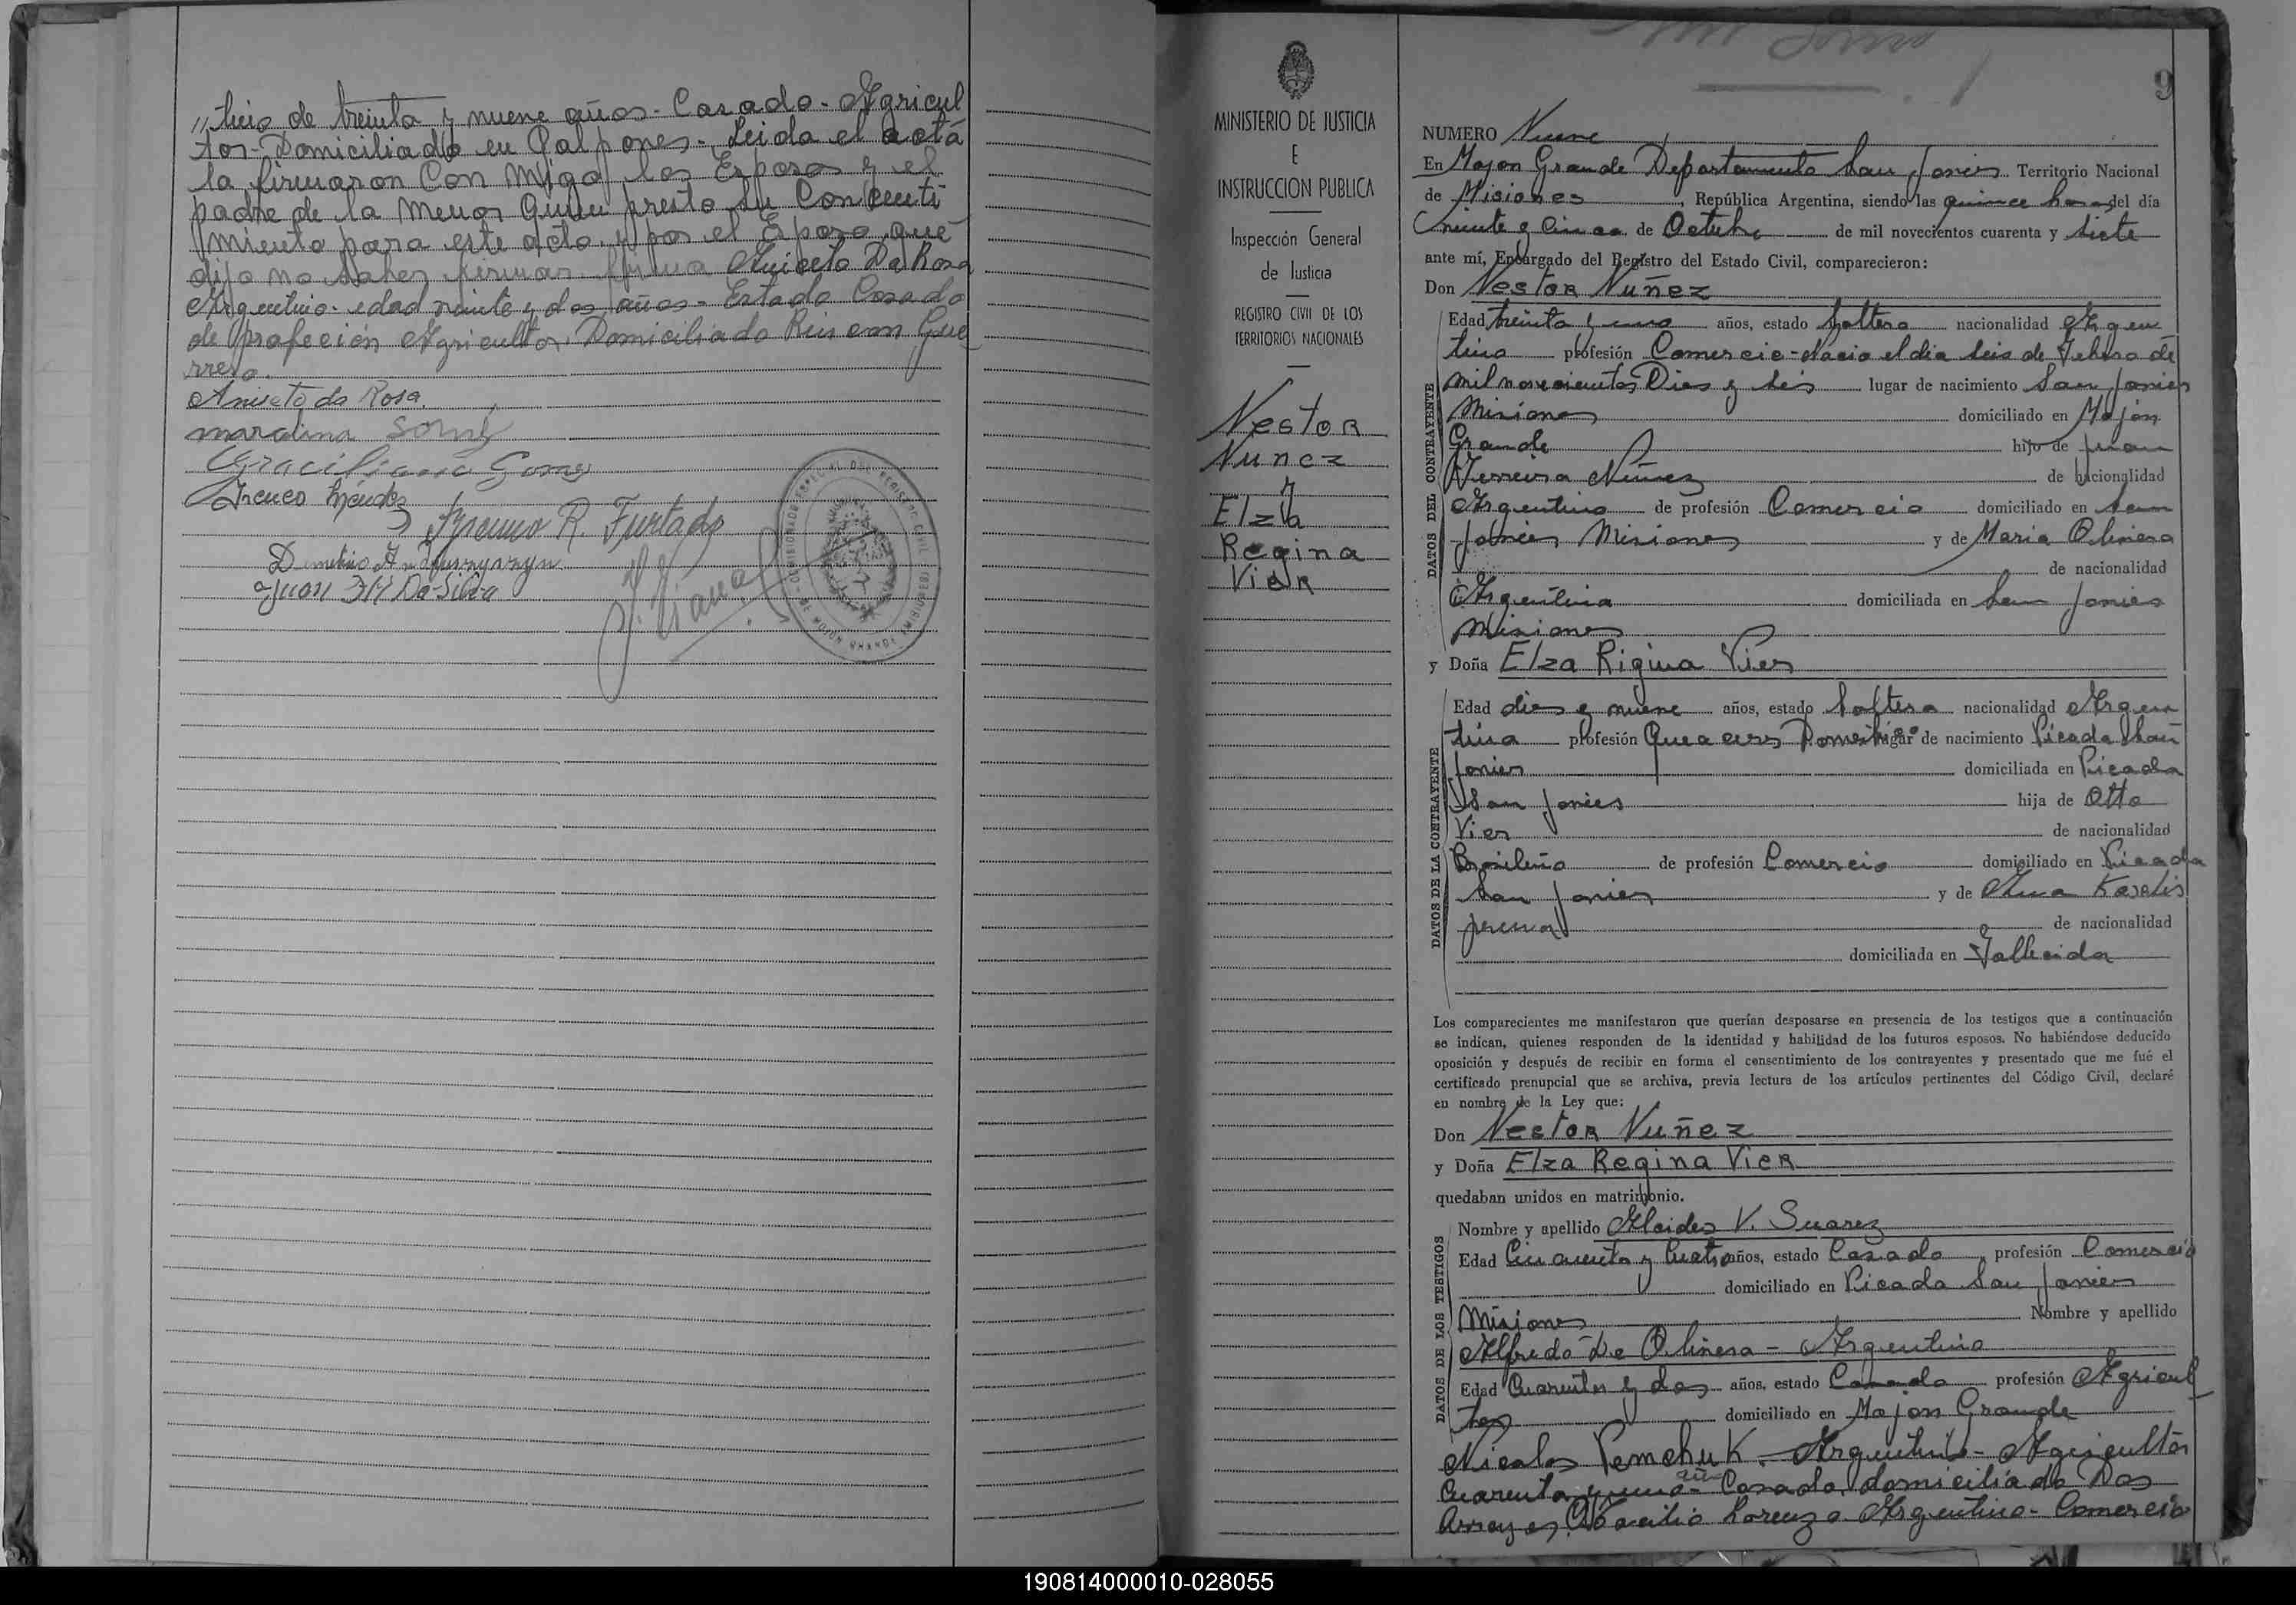 " tino de treinta y nueve años - Casado - Agricul
tor - Domiciliado en Galpones - Leida el acta
la firmaron Con migo los Esposos y el
padre de la Menor Quien presto su Concenti
miento para este acto y por el Esposo que
dijo no saber firmar firma Aniceto Da Rosa
Argentino - edad veinte y dos años - Estado Casado
de profeción Agricultor Domiciliado Rincon Gue
rrero.
Aniceto da Rosa
Graciliano Gomez
Ireneo Méndez
R. Furtado
Juan Da Silva
MINISTERIO DE JUSTICIA
E
INSTRUCCION PUBLICA
Inspección General
de Justicia
REGISTRO CIVIL DE LOS
TERRITORIOS NACIONALES
Nestor
Nunez
y
Elza
Regina
Vier
9
NUMERO Nueve
En Mojon Grande Departamento San Javier Territorio Nacional
de Misiones, República Argentina, siendo las quince horas del día
veinte y cinco de Octubre de mil novecientos cuarenta y siete
ante mí, Encargado del Registro del Estado Civil, comparecieron:
Don Nestor Nuñez
DATOS DEL CONTRAYENTE
Edad treinta y uno años, estado Soltero nacionalidad Argen
tino profesión Comercio - Nacio el dia seis de Febrero de
mil novecientos Dies y seis lugar de nacimiento San Javier
Misiones domiciliado en Mojón
Grande hijo de Juan
Ferreira Núñez de nacionalidad
Argentino de profesión Comercio domiciliado en San
Javier Misiones y de Maria Olivera
de nacionalidad
Argentina domiciliada en San Javier
Misiones
y Doña Elza Rigina Vier
DATOS DE LA CONTRAYENTE
Edad dies y nueve años, estado Soltera nacionalidad Argen
tina profesión Domesticos lugar de nacimiento Picada San
Javier domiciliada en Picada
San Javier hija de Otto
Vier de nacionalidad
Brasileño de profesión Comercio domiciliado en Picada
San Javier y de Ana
de nacionalidad
domiciliada en Fallecida
Los comparecientes me manifestaron que querían desposarse en presencia de los testigos que a continuación
se indican, quienes responden de la identidad y habilidad de los futuros esposos. No habiéndose deducido
oposición y después de recibir en forma el consentimiento de los contrayentes y presentado que me fué el
certificado prenupcial que se archiva, previa lectura de los artículos pertinentes del Código Civil, declaré
en nombre de la Ley que:
Don Nestor Nuñez
y Doña Elza Regina Vier
quedaban unidos en matrimonio.
DATOS DE LOS TESTIGOS
Nombre y apellido Alcides V. Suarez
Edad Cincuenta y Cuatro años, estado Casado profesión Comercio
domiciliado en Picada San Javier
Misiones Nombre y apellido
Alfredo De Olivera - Argentino
Edad Cuarenta y dos años, estado Casado profesión Agricul
tor domiciliado en Mojon Grande
Nicolas Pemchuk. Argentino - Agricultor
Cuarenta y uno años - Casado domiciliado Dos
Arroyos Otacilio Lorenzo Argentino - Comercio
190814000010-028055